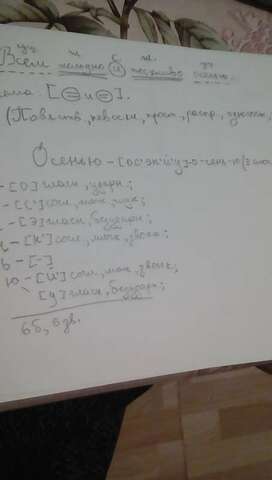 Всем холодно и тоскливо осенью.
[= и =].
(Повеств, невоскл, прост, распр,
Осенью - [ос'эн'й'у] о-сень-ю (3
- [О] гласн, ударн;
- [С'] согл, мягк, глух;
- [Э] гласн, безударн;
н - [н'] согл, мягк, звонк;
ь - [-]
ю - [й'] согл, мяг, звонк;
[у] гласн, безударн;
6б, 6 зв.